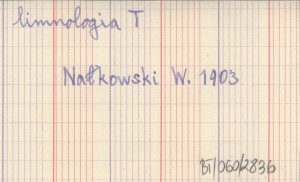 limnologia T
Nałkowski W. 1903
BT/060/2836